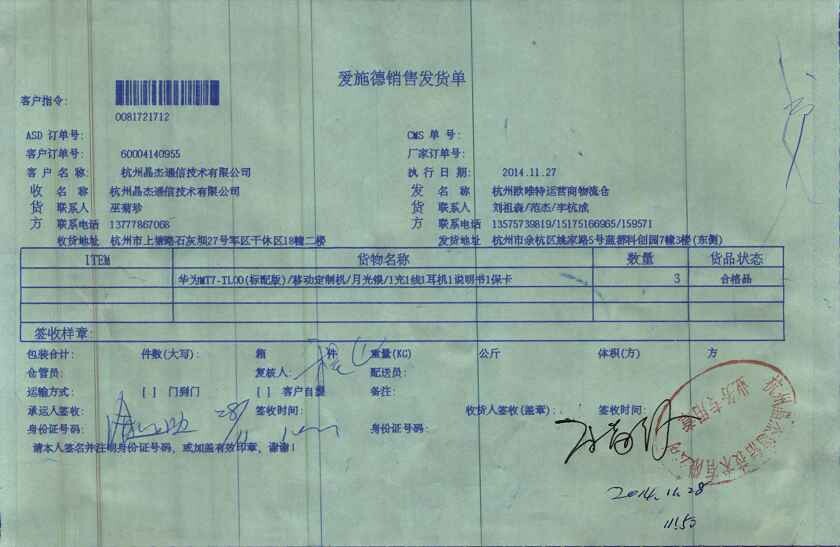 爱施德销售发货单
客户指令:
0081721712
ASD 订单号: CMS 单 号:
客户订单号: 60004140955 厂家订单号:
客 户 名 称: 杭州晶杰通信技术有限公司 执 行 日 期: 2014.11.27
收 名 称 杭州晶杰通信技术有限公司 发 名 称 杭州欧唯特运营商物流仓
货 联系人 巫菊珍 货 联系人 刘祖森/范杰/李杭成
方 联系电话 13777867068 方 联系电话 13575739819/15175166965/159571
收货地址 杭州市上塘路石灰坝27号军区干休区18幢二楼 发货地址 杭州市余杭区姚家路5号蓝都科创园7幢3楼(东侧)
ITEM 货物名称 数量 货品状态
华为MT7-TL00(标配版)/移动定制机/月光银/1充1线1耳机1说明书1保卡 3 合格品
签收样章:
包装合计: 件数(大写): 箱 件 重量(KG) 公斤 体积(方) 方
仓管员: 复核人: 配送员:
运输方式: [ ] 门到门 [ ] 客户自提 备注:
承运人签收: 28/11 签收时间: 收货人签收(盖章): 签收时间:
身份证号码: 身份证号码:
请本人签名并注明身份证号码, 或加盖有效印章, 谢谢!
杭州晶杰通信技术有限公司
业务专用章
2014.11.28
11:53